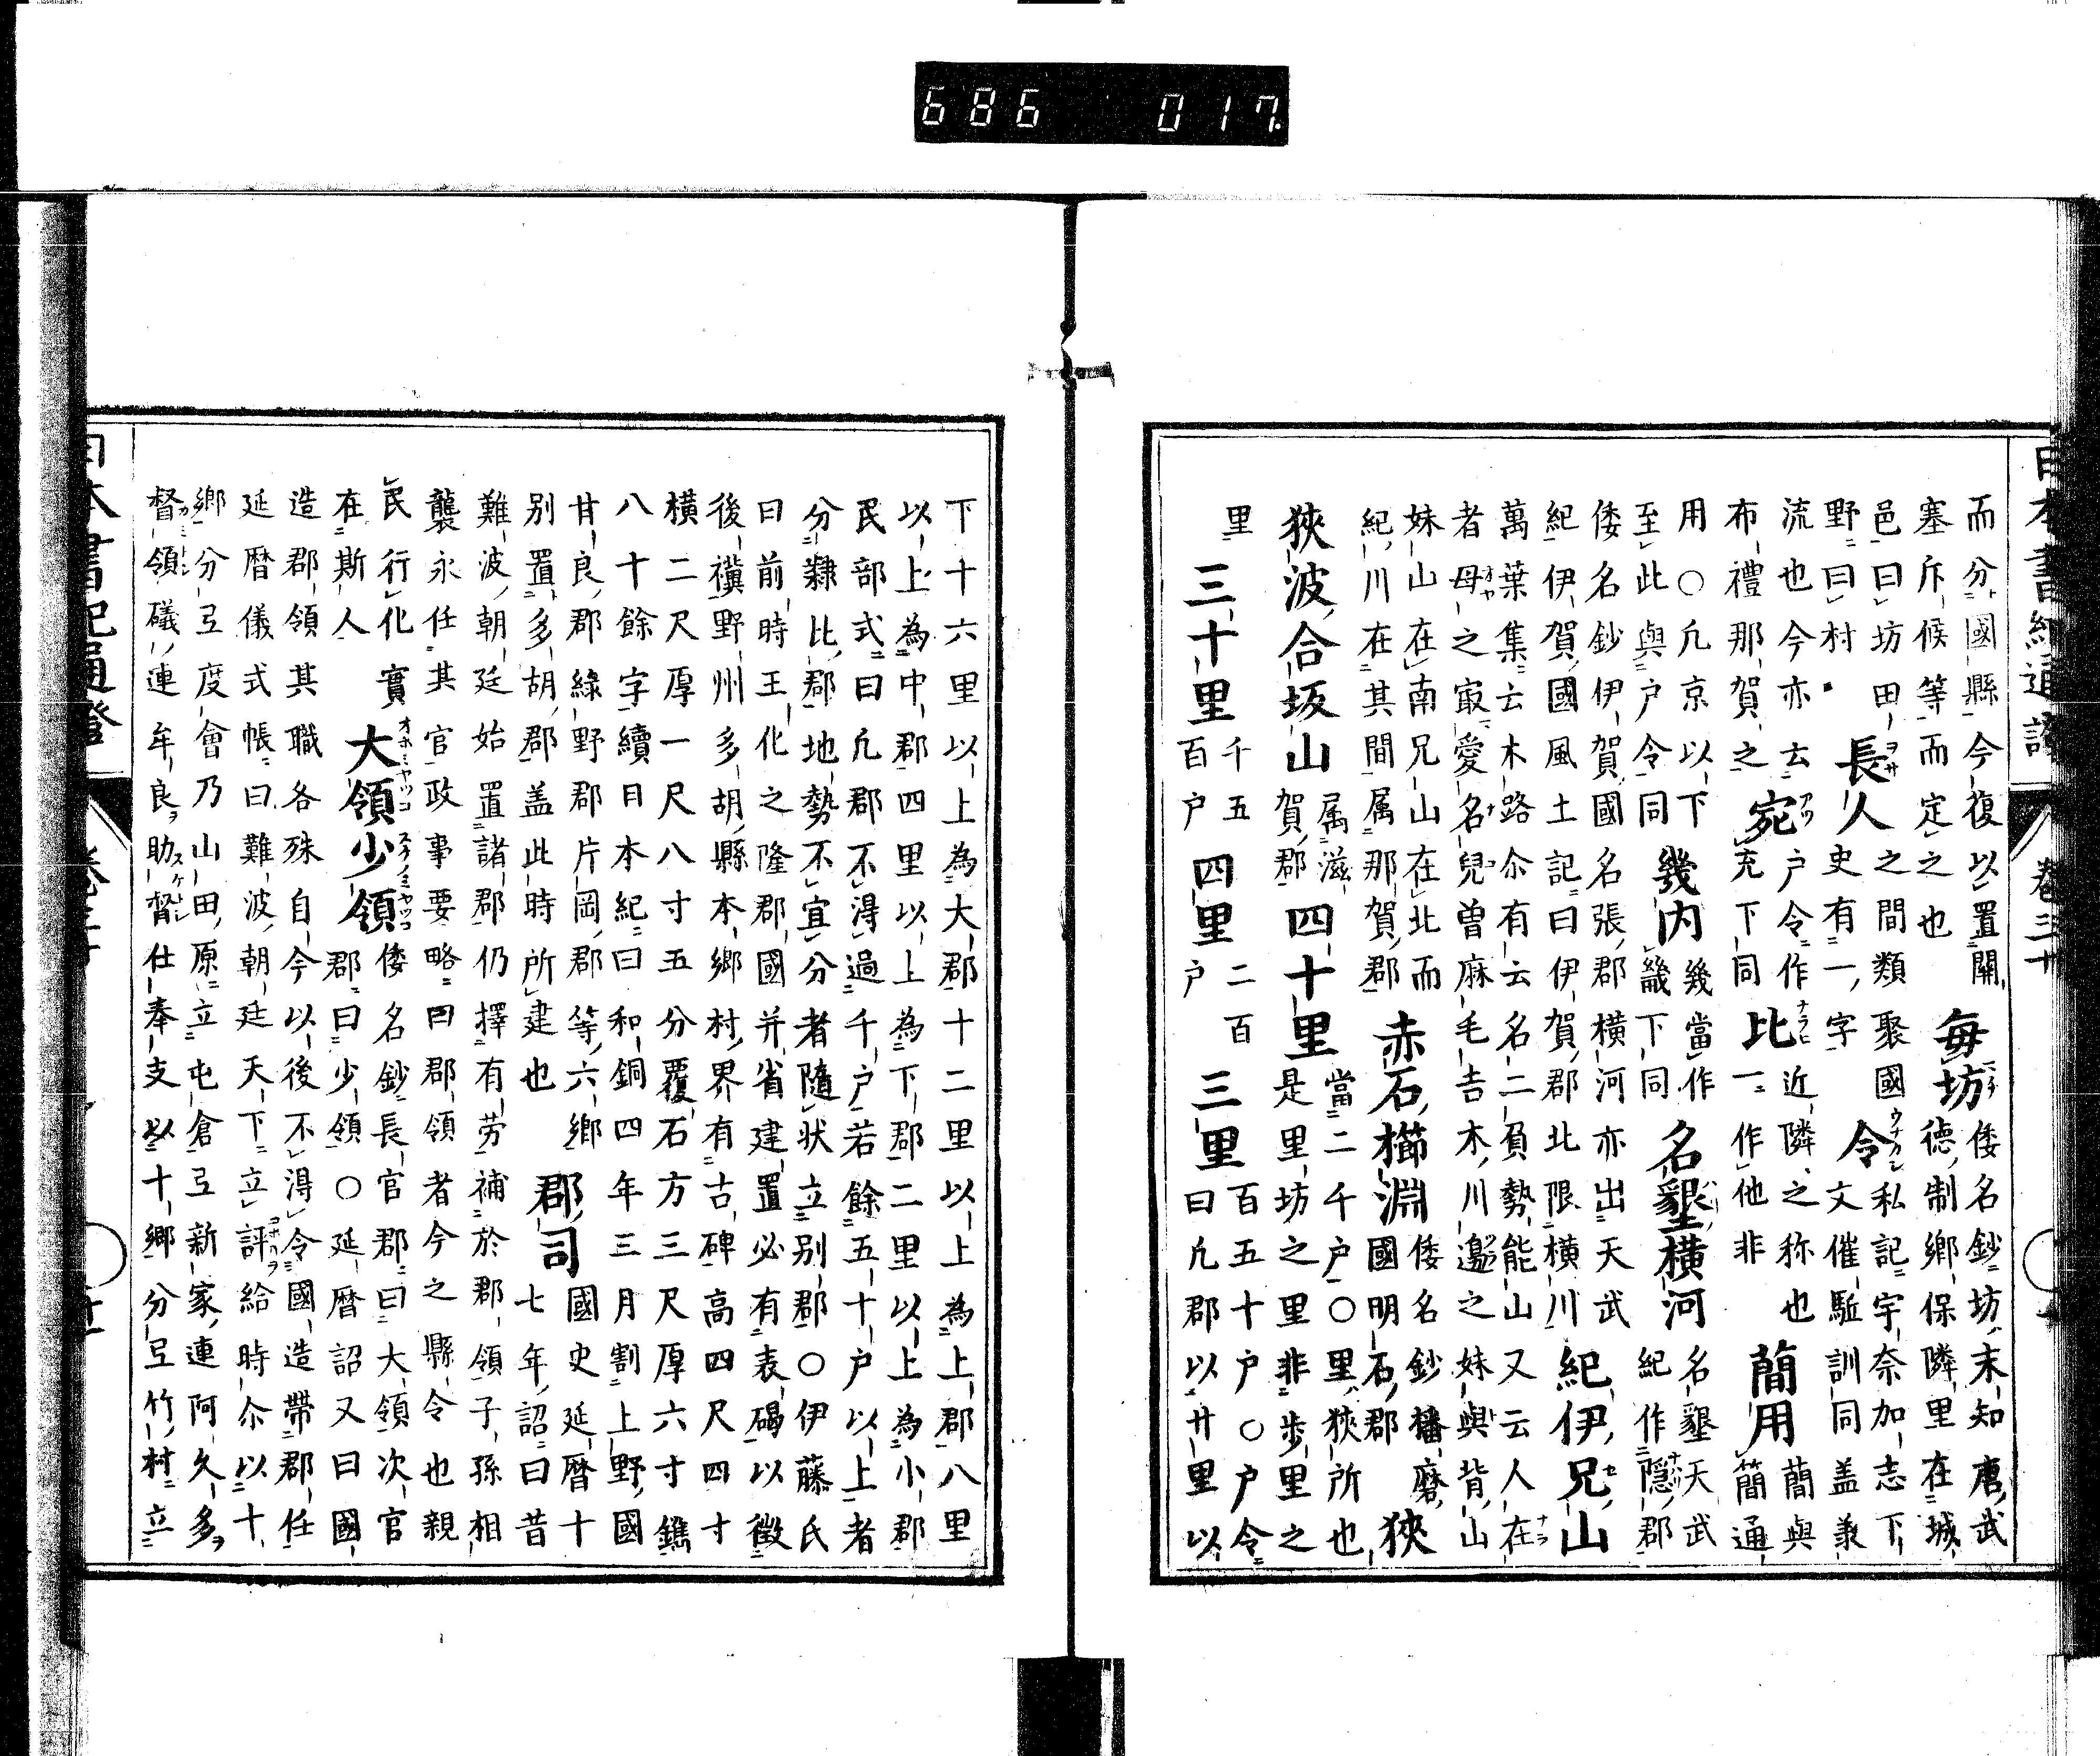 日本書紀通證 卷三十
而分國縣今復以置關
塞斥候等而定之也
毎坊
倭名鈔坊末知唐武
德制鄉保隣里在城
邑曰坊田之間類聚國
野曰村
長人
史有一字
令
私記宇奈加志下
文催駈訓同盖兼
流也今亦云
布禮那賀之
宛
戶令作
充下同
比
近隣之称也
一作他非
蕳用
蕳與
簡通
用○凢京以下
至此與戶令同
幾内
幾當作
畿下同
名墾横河
名墾天武
紀作隱郡
倭名鈔伊賀國名張郡横河亦出天武
紀伊賀國風土記曰伊賀郡北限横川
紀伊兄山
萬葉集云木路尒有云名二負勢能山又云人在
者母之寂愛名兒曽麻毛吉木川邉之妹與背山
妹山在南兄山在北而
紀川在其間属那賀郡
赤石櫛淵
倭名鈔播磨
國明石郡
狹
狹波合坂山
属滋
賀郡
四十里
當二千戶○里狹所也
是里坊之里非步里之
里
三十里
千五
百戶
四里
二百
戶
三里
百五十戶○戶令
曰凢郡以廿里以
下十六里以上為大郡十二里以上為上郡八里
以上為中郡四里以上為下郡二里以上為小郡
民部式曰凢郡不得過千戶若餘五十戶以上者
分隸比郡地勢不宜分者隨状立别郡○伊藤氏
曰前時王化之隆郡國并省建置必有表碣以徴
後禩野州多胡縣本鄉村界有古碑高四尺四寸
横二尺厚一尺八寸五分覆石方三尺厚六寸鐫
八十餘字續日本紀曰和銅四年三月割上野國
甘良郡綠野郡片岡郡等六鄉
别置多胡郡盖此時所建也
郡司
國史延暦十
七年詔曰昔
難波朝廷始置諸郡仍擇有労補於郡領子孫相
襲永任其官政事要略曰郡領者今之縣令也親
民行化實
在斯人
大領少領
倭名鈔長官郡曰大領次官
郡曰少領○延暦詔又曰國
造郡領其職各殊自今以後不得令國造帶郡任
延暦儀式帳曰難波朝廷天下立評給時尒以十
鄉分弖度會乃山田原立屯倉弖新家連阿久多
督領礒連牟良助督仕奉支以十鄉分弖竹村立
日本書紀通證 卷三十